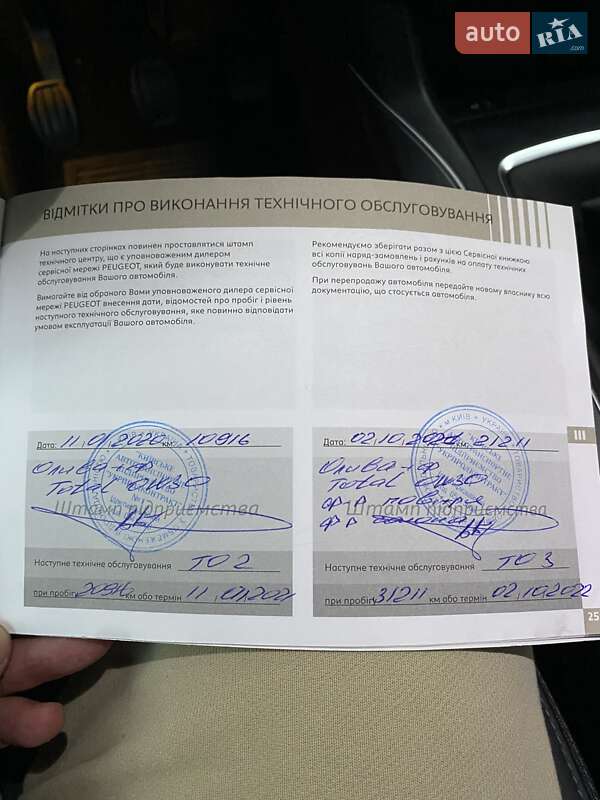 auto RIA.com
ВІДМІТКИ ПРО ВИКОНАННЯ ТЕХНІЧНОГО ОБСЛУГОВУВАННЯ
На наступних сторінках повинен проставлятися штамп
технічного центру, що є уповноваженим дилером
сервісної мережі PEUGEOT, який буде виконувати технічне
обслуговування Вашого автомобіля.
Вимагайте від обраного Вами уповноваженого дилера сервісної
мережі PEUGEOT внесення дати, відомостей про пробіг і рівень
наступного технічного обслуговування, яке повинно відповідати
умовам експлуатації Вашого автомобіля.
Рекомендуємо зберігати разом з цією Сервісної книжкою
всі копії наряд-замовлень і рахунків на оплату технічних
обслуговувань Вашого автомобіля.
При перепродажу автомобіля передайте новому власнику всю
документацію, що стосується автомобіля.
Дата: 11.01.2020 км: 10916
Олива + ф
Total 0W30
Штамп підприємства
Наступне технічне обслуговування ТО 2
при пробігу км або термін 11.01.2021
Дата: 02.10. км: 21211
Олива + ф
Total 0W30
ф-р повітря
ф-р салона
Штамп підприємства
Наступне технічне обслуговування ТО 3
при пробігу 31211 км або термін 02.10.2022
III
25